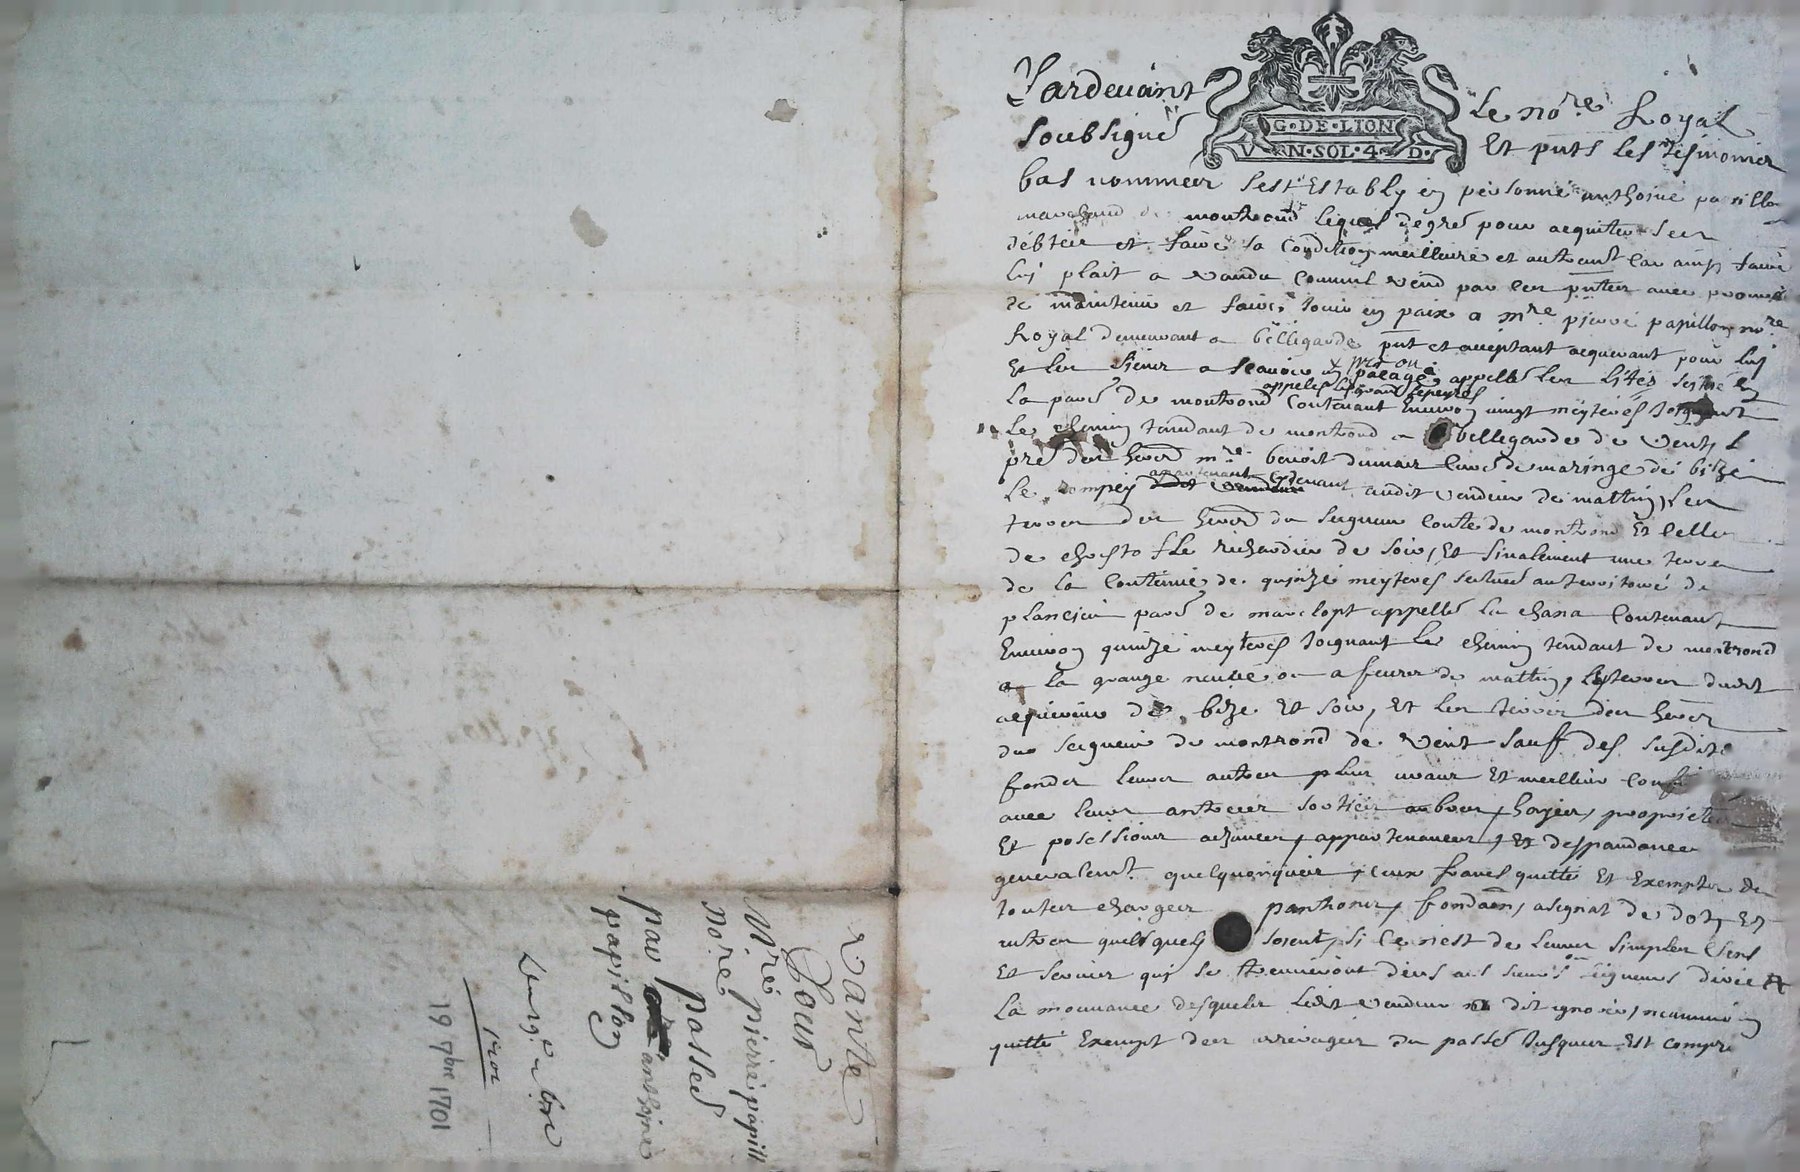 Pardevant
Le no.re Royal
G·DE·LION
V N·SOL·4 D·
soubsigné
Et pnts les tesmoins
bas nommez sest Estably en personne anthoine papillon
marchand de montrond lequel de gré pour acquiter ses
debtes et faire sa condition meilleure et autrement car ainsy faire
luy plait a vandu comme vend par ces pntes avec promesse
de maintenir et faire jouir en paix a mre pierre papillon no.re
Royal demeurant a bellegarde pnt et acceptant acquerant pour luy
Et les siens a scavoir un pré ou
pacage appellé les littes scitué en
appellé
la parr de montrond contenant Environ vingt meyterés joignant
le chemin tendant de montrond a bellegarde de vent, l
pré des hers mre benoit dumas curé de maringe de bize
appartenant cydevant
le audit vendeur de mattin, les
terres des hers du seigneur comte de montrond Et celles
de christofle richardier de soir, Et finalement une terre
de la contenue de quinze meyterés scituée au territoire de
plancieu parr de marclopt appellée la chana contenant
Environ quinze meyterés joignant le chemin tendant de montrond
a la grange neuve ou a feurs de mattin, les terres dudit
acquereur de bize Et soir, Et les terres des hers
du seigneur de montrond de vent sauf des susdits
fonds leurs autres plus vrais Et meilleurs confins
avec leurs entrées sorties arbres, hayes, proprietes
Et possessions aizances, appartenances, Et despandances
generalemt quelquonques, iceux francs quitte Et Exempts de
toutes charges pantions, fondaon, asignat de dot, Et
autres quelsquels soient, si ce n'est de leurs simples Cens
Et servis quy se treuveront deus aux sieurs seigneurs directs de
la mouvance desquels ledit vendeur a dit ignorer, neanmoins
quitte Exempt des arrerages du passé jusques Et compris
Vante
Pour
Mre pierre papill
no.re
passée
par anthoine
papillon
1701
19 7bre 1701